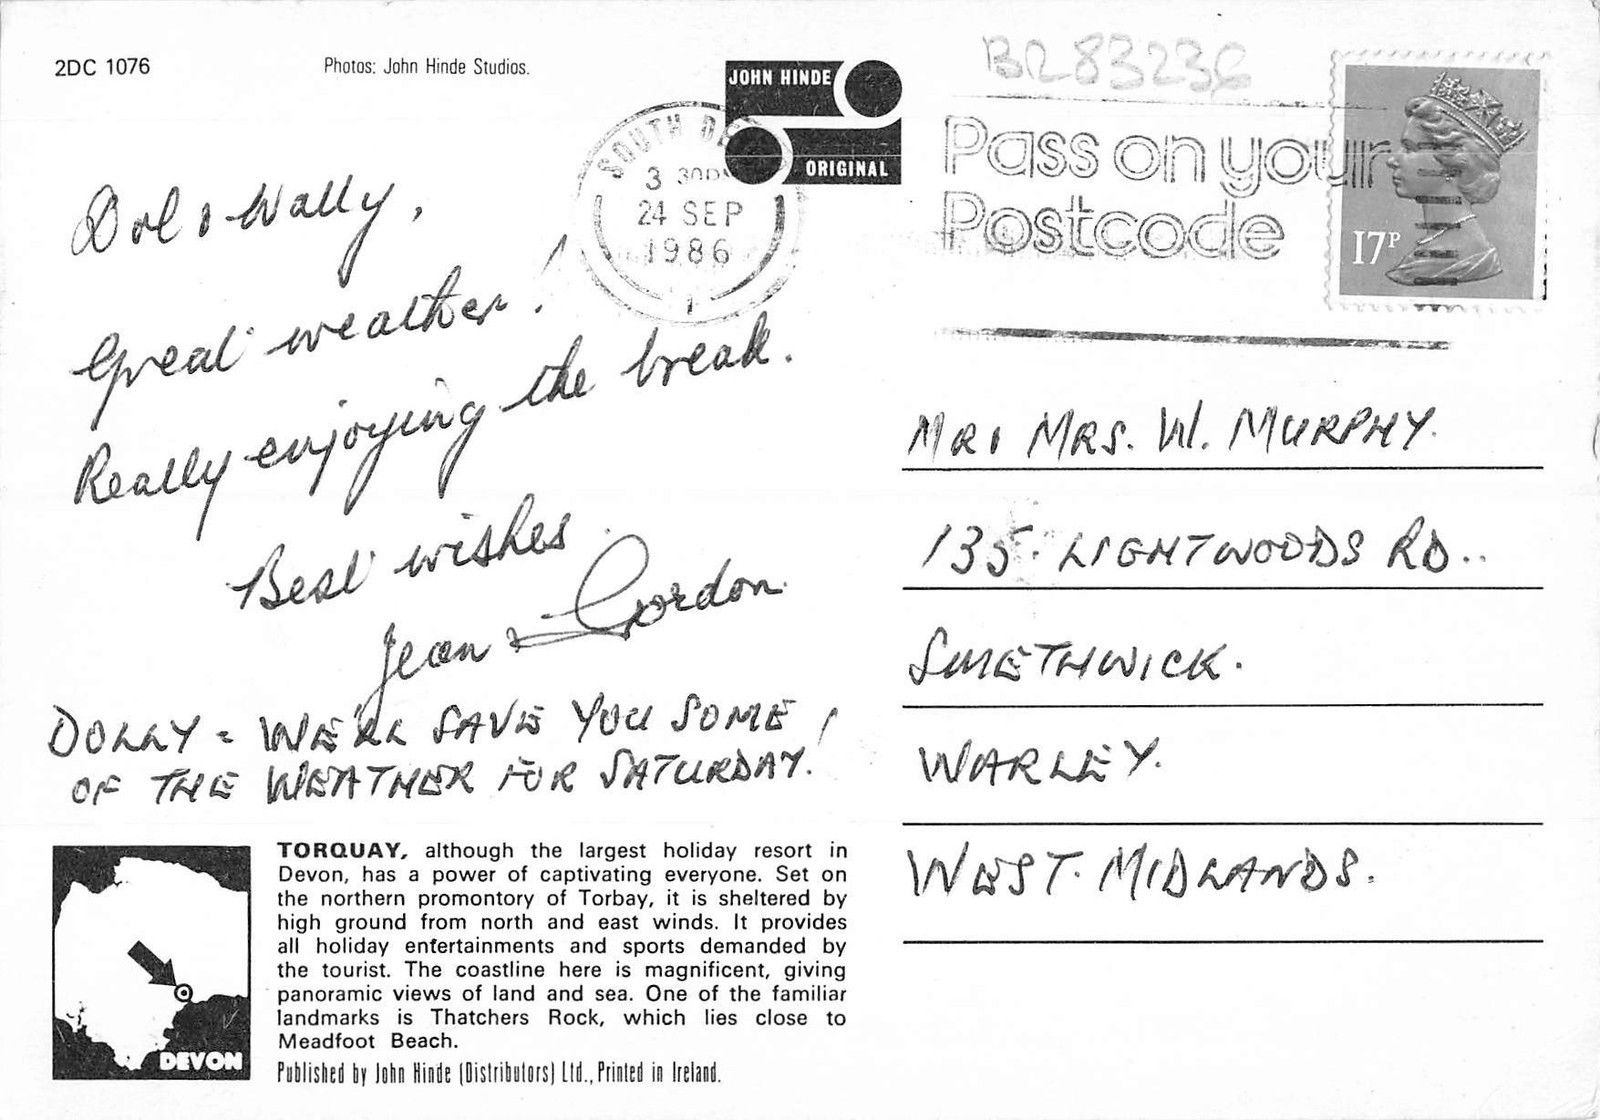 2DC 1076
Photos: John Hinde Studios.
JOHN HINDE
ORIGINAL
BR83236
SOUTH DE
3 30PM
24 SEP
1986
1
Pass on your
Postcode
17P
Dol & Wally,
Great weather!
Really enjoying the break.
Best wishes.
Jean & Gordon.
DOLLY - WE'LL SAVE YOU SOME
OF THE WEATHER FOR SATURDAY!
MR & MRS. W. MURPHY.
135. LIGHTWOODS RD..
SMETHWICK.
WARLEY.
WEST. MIDLANDS.
DEVON
TORQUAY, although the largest holiday resort in
Devon, has a power of captivating everyone. Set on
the northern promontory of Torbay, it is sheltered by
high ground from north and east winds. It provides
all holiday entertainments and sports demanded by
the tourist. The coastline here is magnificent, giving
panoramic views of land and sea. One of the familiar
landmarks is Thatchers Rock, which lies close to
Meadfoot Beach.
Published by John Hinde (Distributors) Ltd., Printed in Ireland.